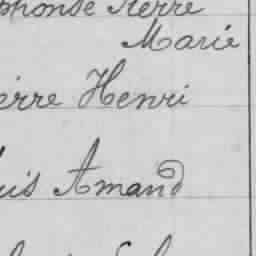 phonse Pierre
Marie
ierre Henri
uis Amand